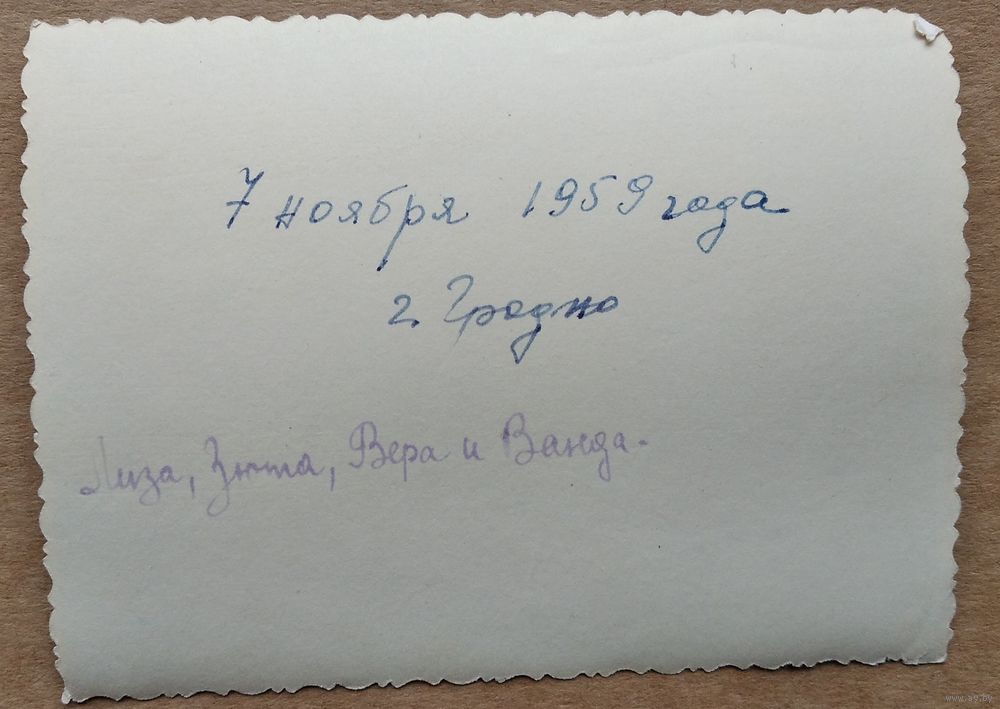 7 ноября 1959 года
г. Гродно
Лиза, Зюта, Вера и Ванда.
www.ay.by